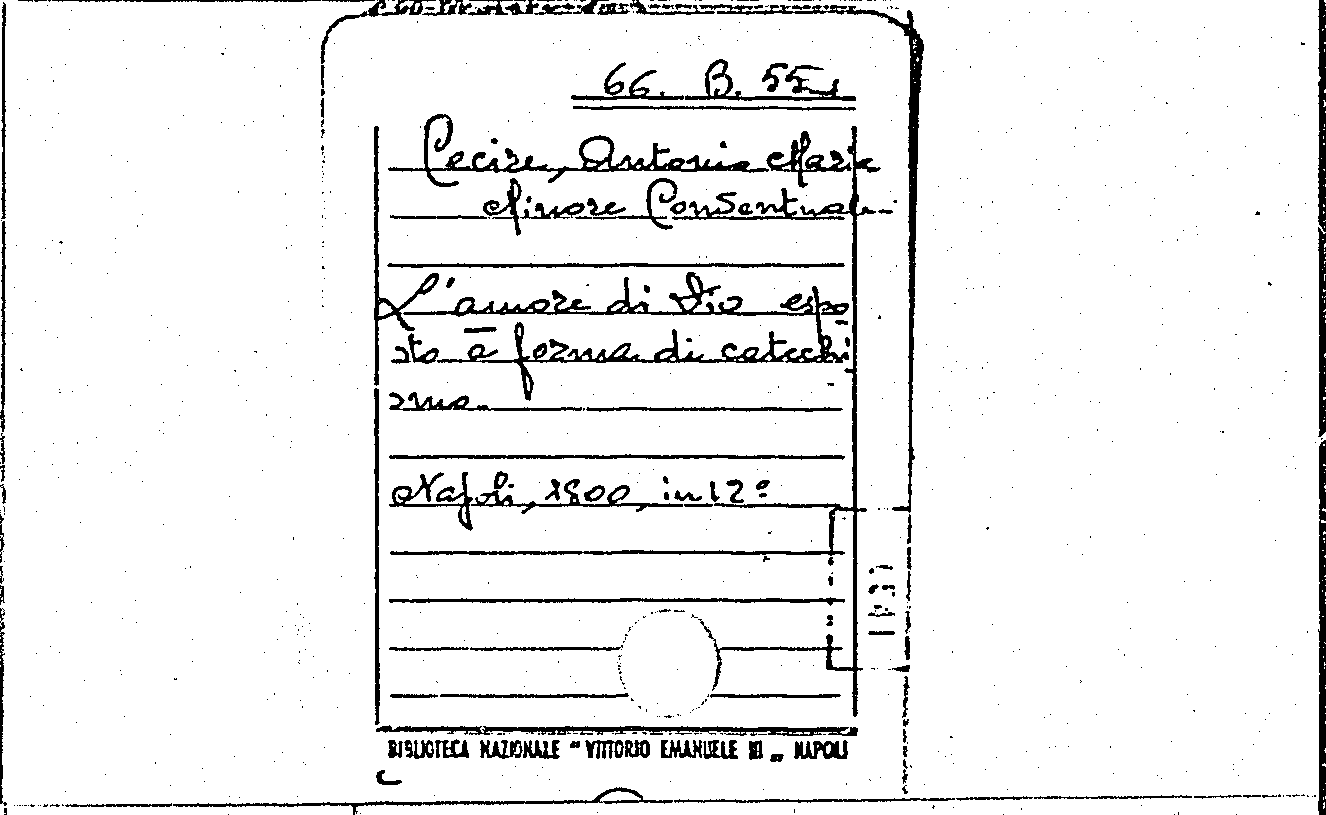 66. B. 55
Cecire, Antonio Maria
Minore Consentual.
L'amore di Dio espo
sto a forma di catechi
smo.
Napoli, 1800, in 12º
BIBLIOTECA NAZIONALE " VITTORIO EMANUELE III „ NAPOLI